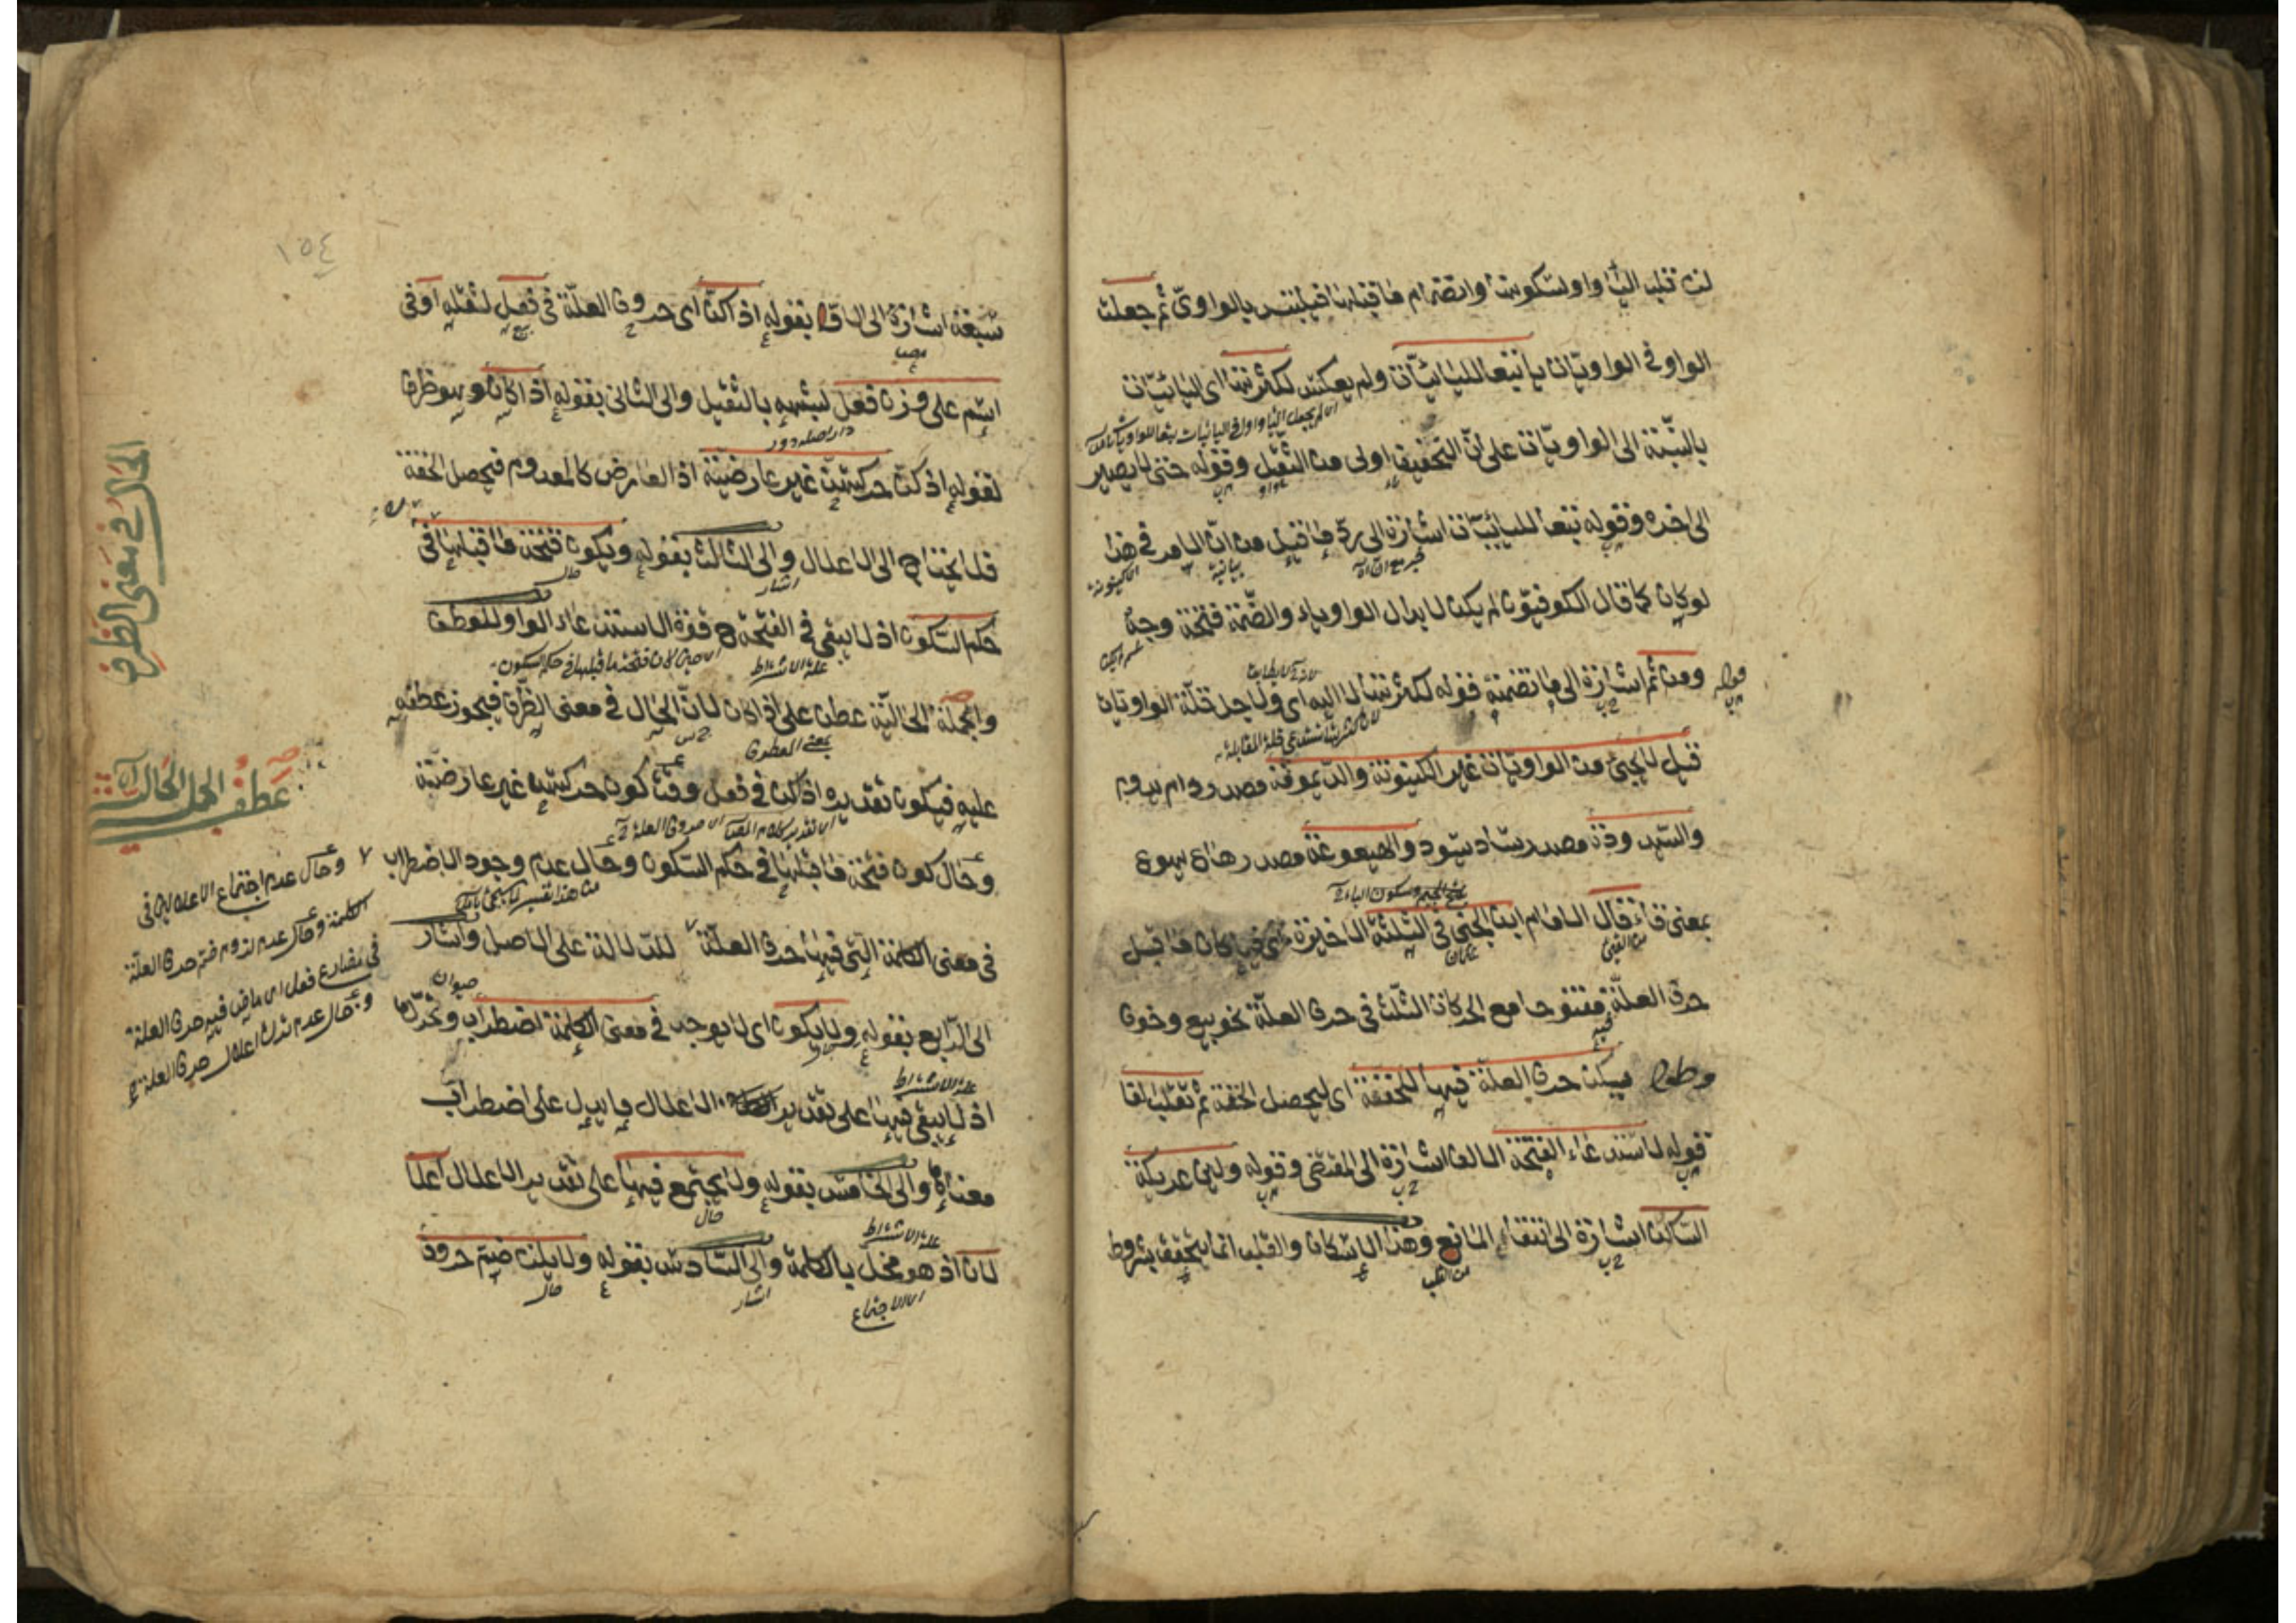 لزم قلب الياء واوا لسكونها وانضمام ما قبلها فيلتبس بالواوى ثم جعلت
الواو فى الواويات ياء تبعا لليائيات ولم يعكس لكثرتها اى اليائيات
بالنسبة الى الواويات على ان التخفيف اولى من الثقيل وقوله حتى لا يصير
الى اخره وقوله تبعا لليائيات اشارة الى رد ما قيل من ان الامر فى هذا
لو كان كما قال الكوفيون لم يكن لابدال الواو ياء والضمة فتحة وجه
ومن ثم اشارة الى ما تضمنه قوله لكثرتها لا اليه اى ولاجل قلة الواويات
قيل لا يجئ من الواويات غير الكينونة والديمومة مصدر دام يدوم
والسيدودة مصدر ساد يسود والهيعوعة مصدر هاع يهوع
بمعنى قاء قال الامام ابن الجنى فى الثلثة الاخيرة اى فيما كان ما قبل
حرف العلة مفتوحا مع الحركات الثلث فى حرف العلة نحو بيع وخوف
وطول يسكن حرف العلة فيها للخفة اى ليحصل الخفة ثم تقلب الفا
قوله لاستدعاء الفتحة الالف اشارة الى المقتضى وقوله ولين عريكة
الساكن اشارة الى انتفاء المانع وهذا الاسكان والقلب انما يتحقق بشروط
١٥٤
سبعة اشارة الى الاول بقوله اذا كن اى حروف العلة فى فعل لثقله او فى
اسم على وزن فعل لشبهه بالثقيل والى الثانى بقوله اذا كان وهو ظرف
لقوله اذا كن حركتهن غير عارضية اذ العارض كالمعدوم فيحصل الخفة
فلا يحتاج الى الاعلال والى الثالث بقوله ويكون فتحة ما قبلها فى
حكم السكون اذ لا يبقى فى الفتحة ح قوة الاستدعاء الواو للعطف
والجملة الحالية عطف على اذا كان لان الحال فى معنى الظرف فيجوز عطفه
عليه فيكون تقديره اذا كن فى فعل وقت كون حركتها غير عارضية
وحال كون فتحة ما قبلها فى حكم السكون وحال عدم وجود الاضطراب
فى معنى الكلمة التى فيها حرف العلة للدلالة على الاصل واشار
الى الرابع بقوله ولا يكون اى لا يوجد فى معنى الكلمة اضطراب وتحرك
اذ لا يبقى فيها على تقدير الاعلال ما يدل على اضطراب
معناها والى الخامس بقوله ولا يجتمع فيها على تقدير الاعلال اعلا
لان اذ هو مخل بالكلمة والى السادس بقوله ولا يلزم ضم حروف
الحال فى معنى الظرف
عطف الجمل الحاليات
وحال عدم اجتماع الاعلالين فى
الكلمة وحال عدم لزوم ضم حرف العلة
فى مضارع فعل اى ماض فيه حرف العلة
وحال عدم ترك اعلال حرف العلة